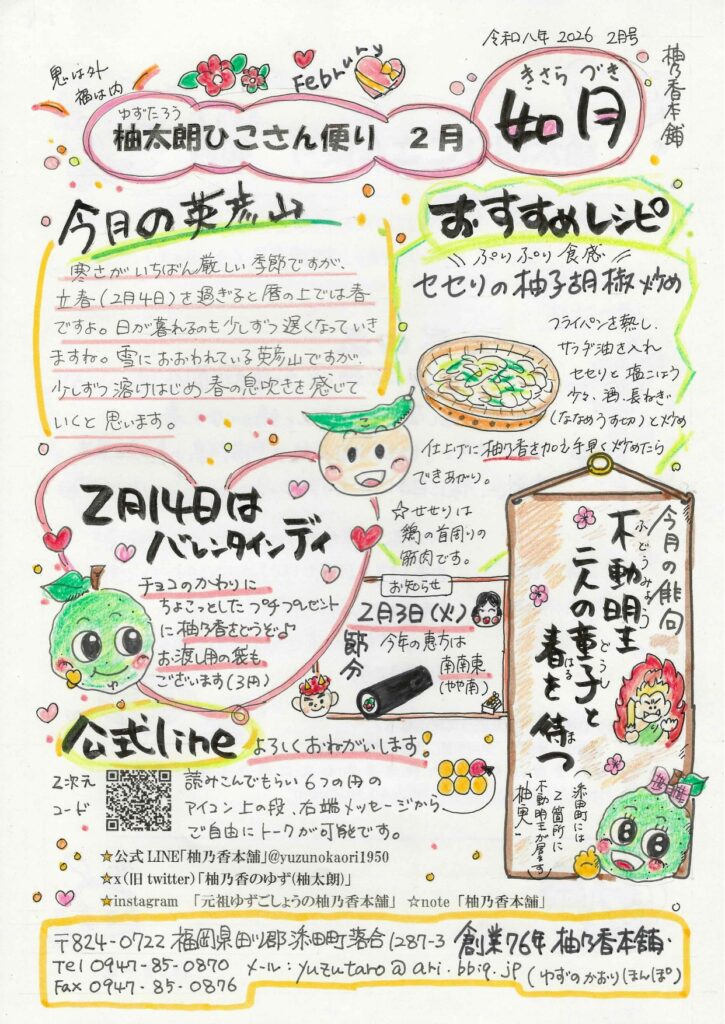 令和八年 2026 2月号
柚乃香本舗
鬼は外
福は内
Februry
きさらづき
如月
ゆずたろう
柚太朗ひこさん便り 2月
今月の英彦山
寒さがいちばん厳しい季節ですが、
立春(2月4日)を過ぎると暦の上では春
ですよ。日が暮れるのも少しずつ遅くなっていき
ますね。雪におおわれている英彦山ですが、
少しずつ溶けはじめ春の息吹きを感じて
いくと思います。
おすすめレシピ
ぷりぷり食感
セセリの柚子胡椒炒め
フライパンを熱し、
サラダ油を入れ
セセリと塩こしょう
少々、酒、長ねぎ
(ななめうす切)と炒め
仕上げに柚乃香を加え手早く炒めたら
できあがり。
☆せせりは
鶏の首周りの
筋肉です。
2月14日は
バレンタインディ
チョコのかわりに
ちょこっとしたプチプレゼント
に柚乃香をどうぞ♪
お渡し用の袋も
ございます(3円)
お知らせ
2月3日(火)
節分
今年の恵方は
南南東
(やや南)
今月の俳句
ふどうみょうおう
不動明王
どうし
二人の童子と
はる ま
春を待つ
(添田町には
2箇所に
不動明王が居ます)
「柚実」
公式line よろしくおねがいします!
2次元
コード
読みこんでもらい6つの円の
アイコン上の段、右端メッセージから
ご自由にトークが可能です。
☆公式LINE「柚乃香本舗」@yuzunokaori1950
☆x(旧twitter)「柚乃香のゆず(柚太朗)」
☆instagram 「元祖ゆずごしょうの柚乃香本舗」 ☆note「柚乃香本舗」
〒824-0722 福岡県田川郡添田町落合1287-3 創業76年 柚乃香本舗
Tel 0947-85-0870 メール:yuzutaro@ari.bbiq.jp (ゆずのかおりほんぽ)
Fax 0947-85-0876